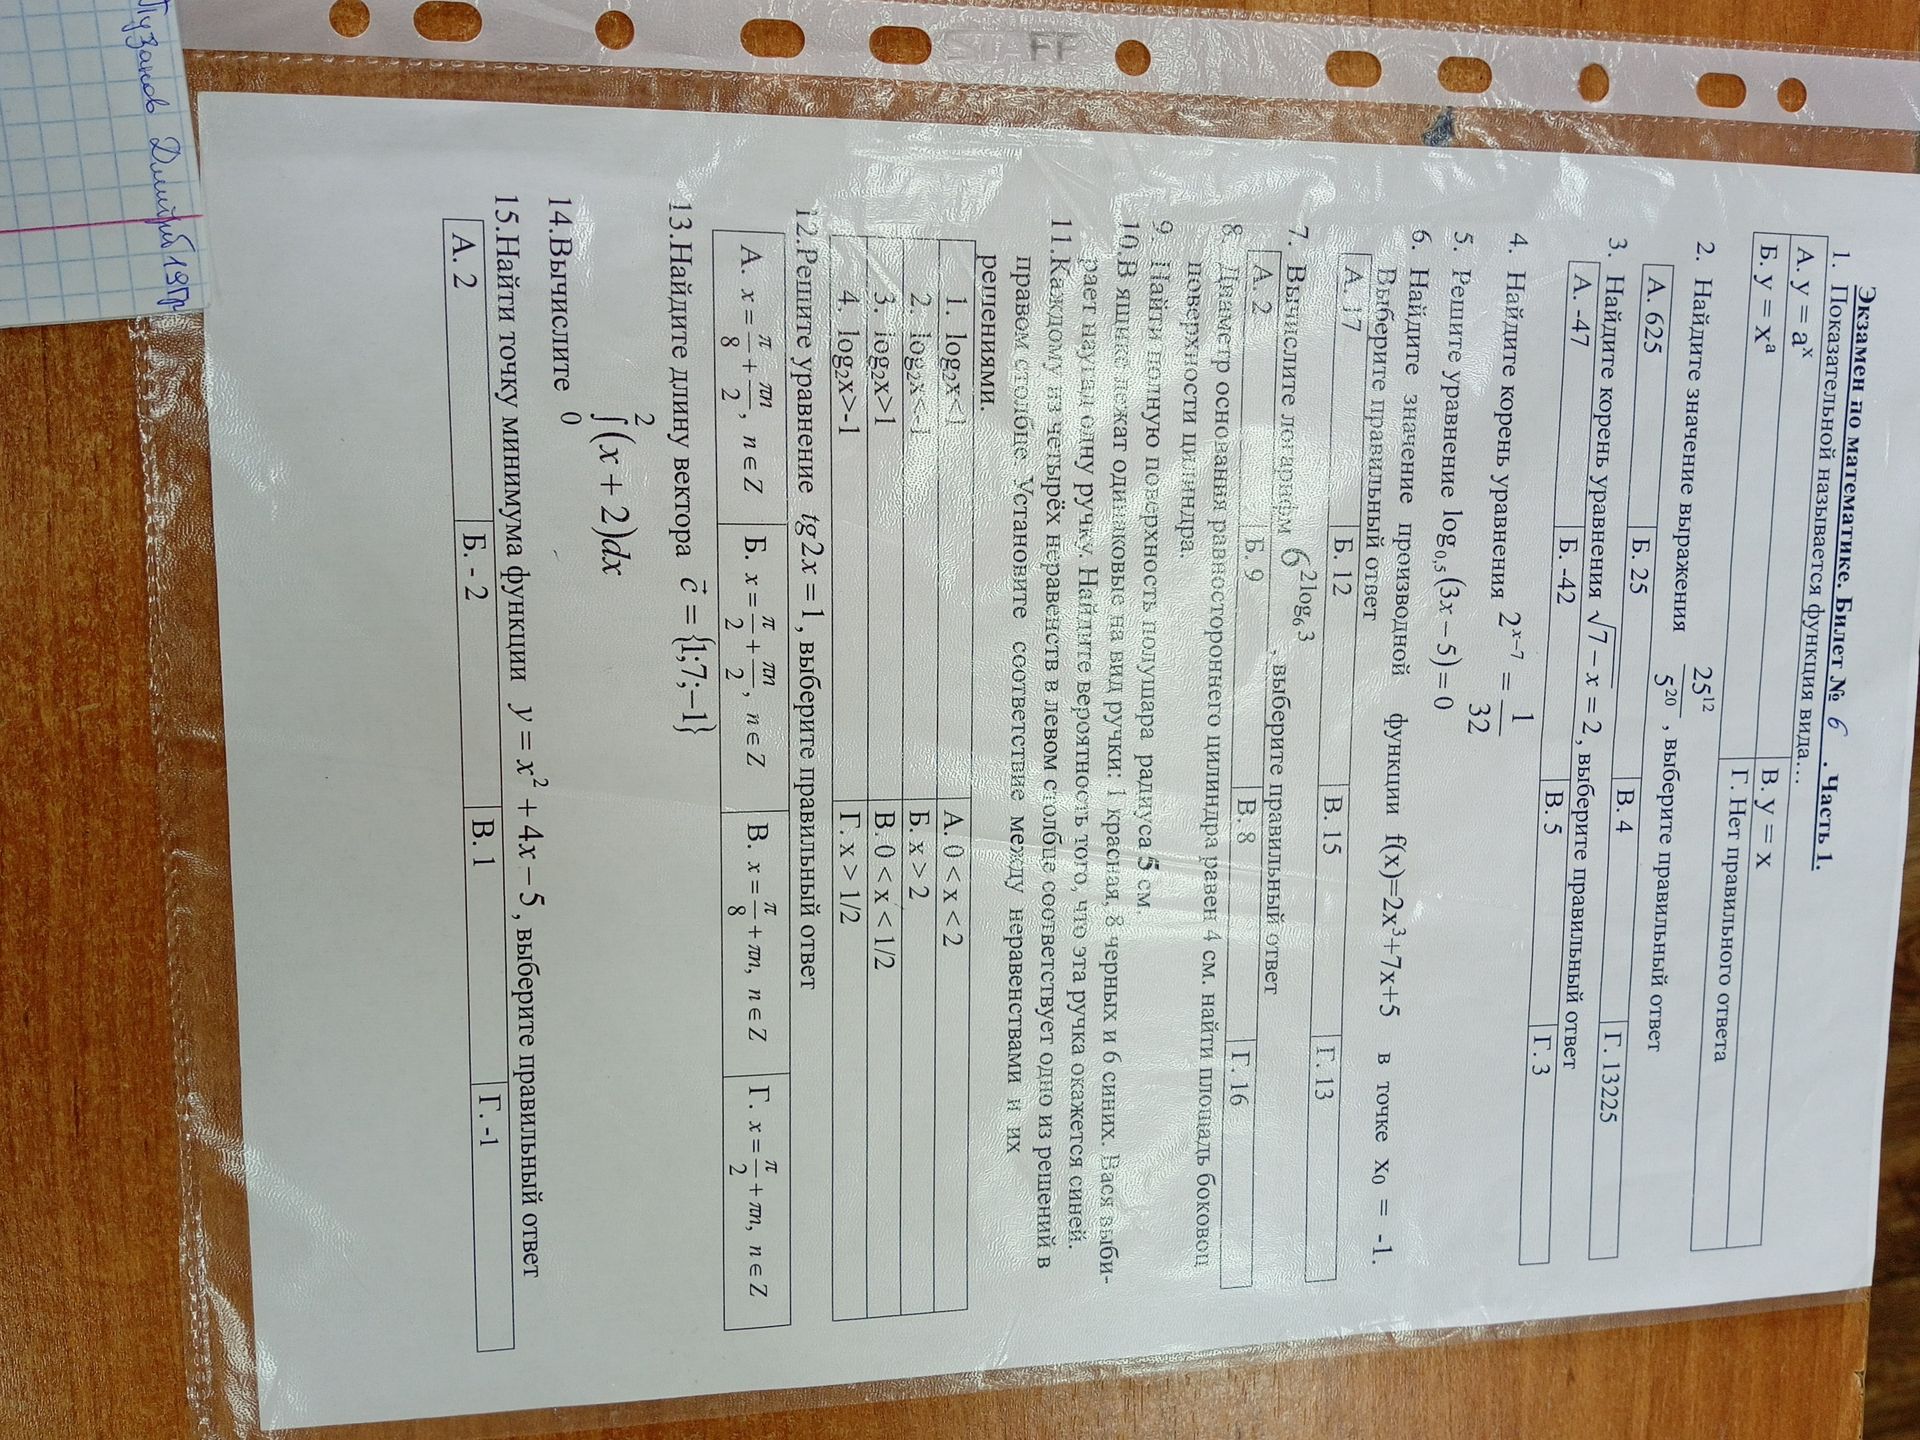 Экзамен по математике. Билет № 6 . Часть 1.
1. Показательной называется функция вида…
А. y = aˣ
В. y = x
Б. y = xᵃ
Г. Нет правильного ответа
2. Найдите значение выражения 25¹²/5²⁰ , выберите правильный ответ
А. 625
Б. 25
В. 4
Г. 13225
3. Найдите корень уравнения √(7 − x) = 2 , выберите правильный ответ
А. -47
Б. -42
В. 5
Г. 3
4. Найдите корень уравнения 2ˣ⁻⁷ = 1/32
5. Решите уравнение log₀,₅(3x − 5) = 0
6. Найдите значение производной функции f(x)=2x³+7x+5 в точке x₀ = -1.
Выберите правильный ответ
А. 17
Б. 12
В. 15
Г. 13
7. Вычислите логарифм 6^(2log₆3) , выберите правильный ответ
А. 2
Б. 9
В. 8
Г. 16
8. Диаметр основания равностороннего цилиндра равен 4 см. найти площадь боковой
поверхности цилиндра.
9. Найти полную поверхность полушара радиуса 5 см.
10.В ящике лежат одинаковые на вид ручки: 1 красная, 8 черных и 6 синих. Вася выби-
рает наугад одну ручку. Найдите вероятность того, что эта ручка окажется синей.
11.Каждому из четырёх неравенств в левом столбце соответствует одно из решений в
правом столбце. Установите соответствие между неравенствами и их
решениями.
1. log₂x<1
А. 0 < x < 2
2. log₂x<-1
Б. x > 2
3. log₂x>1
В. 0 < x < 1/2
4. log₂x>-1
Г. x > 1/2
12.Решите уравнение tg2x = 1 , выберите правильный ответ
А. x = π/8 + πn/2, n ∈ Z
Б. x = π/2 + πn/2, n ∈ Z
В. x = π/8 + πn, n ∈ Z
Г. x = π/2 + πn, n ∈ Z
13.Найдите длину вектора c⃗ = {1;7;−1}
14.Вычислите ∫₀²(x + 2)dx
15.Найти точку минимума функции y = x² + 4x − 5 , выберите правильный ответ
А. 2
Б. - 2
В. 1
Г. -1
Пузанов Дмитрий 19гр